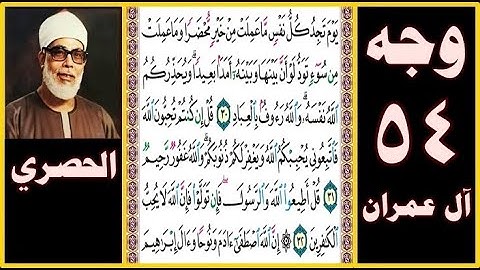 وجه
٥٤
آل عمران
يَوْمَ تَجِدُ كُلُّ نَفْسٍ مَّا عَمِلَتْ مِنْ خَيْرٍ مُّحْضَرًا وَمَا عَمِلَتْ
مِن سُوٓءٍ تَوَدُّ لَوْ أَنَّ بَيْنَهَا وَبَيْنَهُۥٓ أَمَدًۢا بَعِيدًا ۗ وَيُحَذِّرُكُمُ
ٱللَّهُ نَفْسَهُۥ ۗ وَٱللَّهُ رَءُوفٌۢ بِٱلْعِبَادِ ٣٠ قُلْ إِن كُنتُمْ تُحِبُّونَ ٱللَّهَ
فَٱتَّبِعُونِى يُحْبِبْكُمُ ٱللَّهُ وَيَغْفِرْ لَكُمْ ذُنُوبَكُمْ ۗ وَٱللَّهُ غَفُورٌ رَّحِيمٌ
٣١ قُلْ أَطِيعُوا۟ ٱللَّهَ وَٱلرَّسُولَ ۖ فَإِن تَوَلَّوْا۟ فَإِنَّ ٱللَّهَ لَا يُحِبُّ
ٱلْكَٰفِرِينَ ٣٢ ۞ إِنَّ ٱللَّهَ ٱصْطَفَىٰٓ ءَادَمَ وَنُوحًا وَءَالَ إِبْرَٰهِيمَ
الحصري